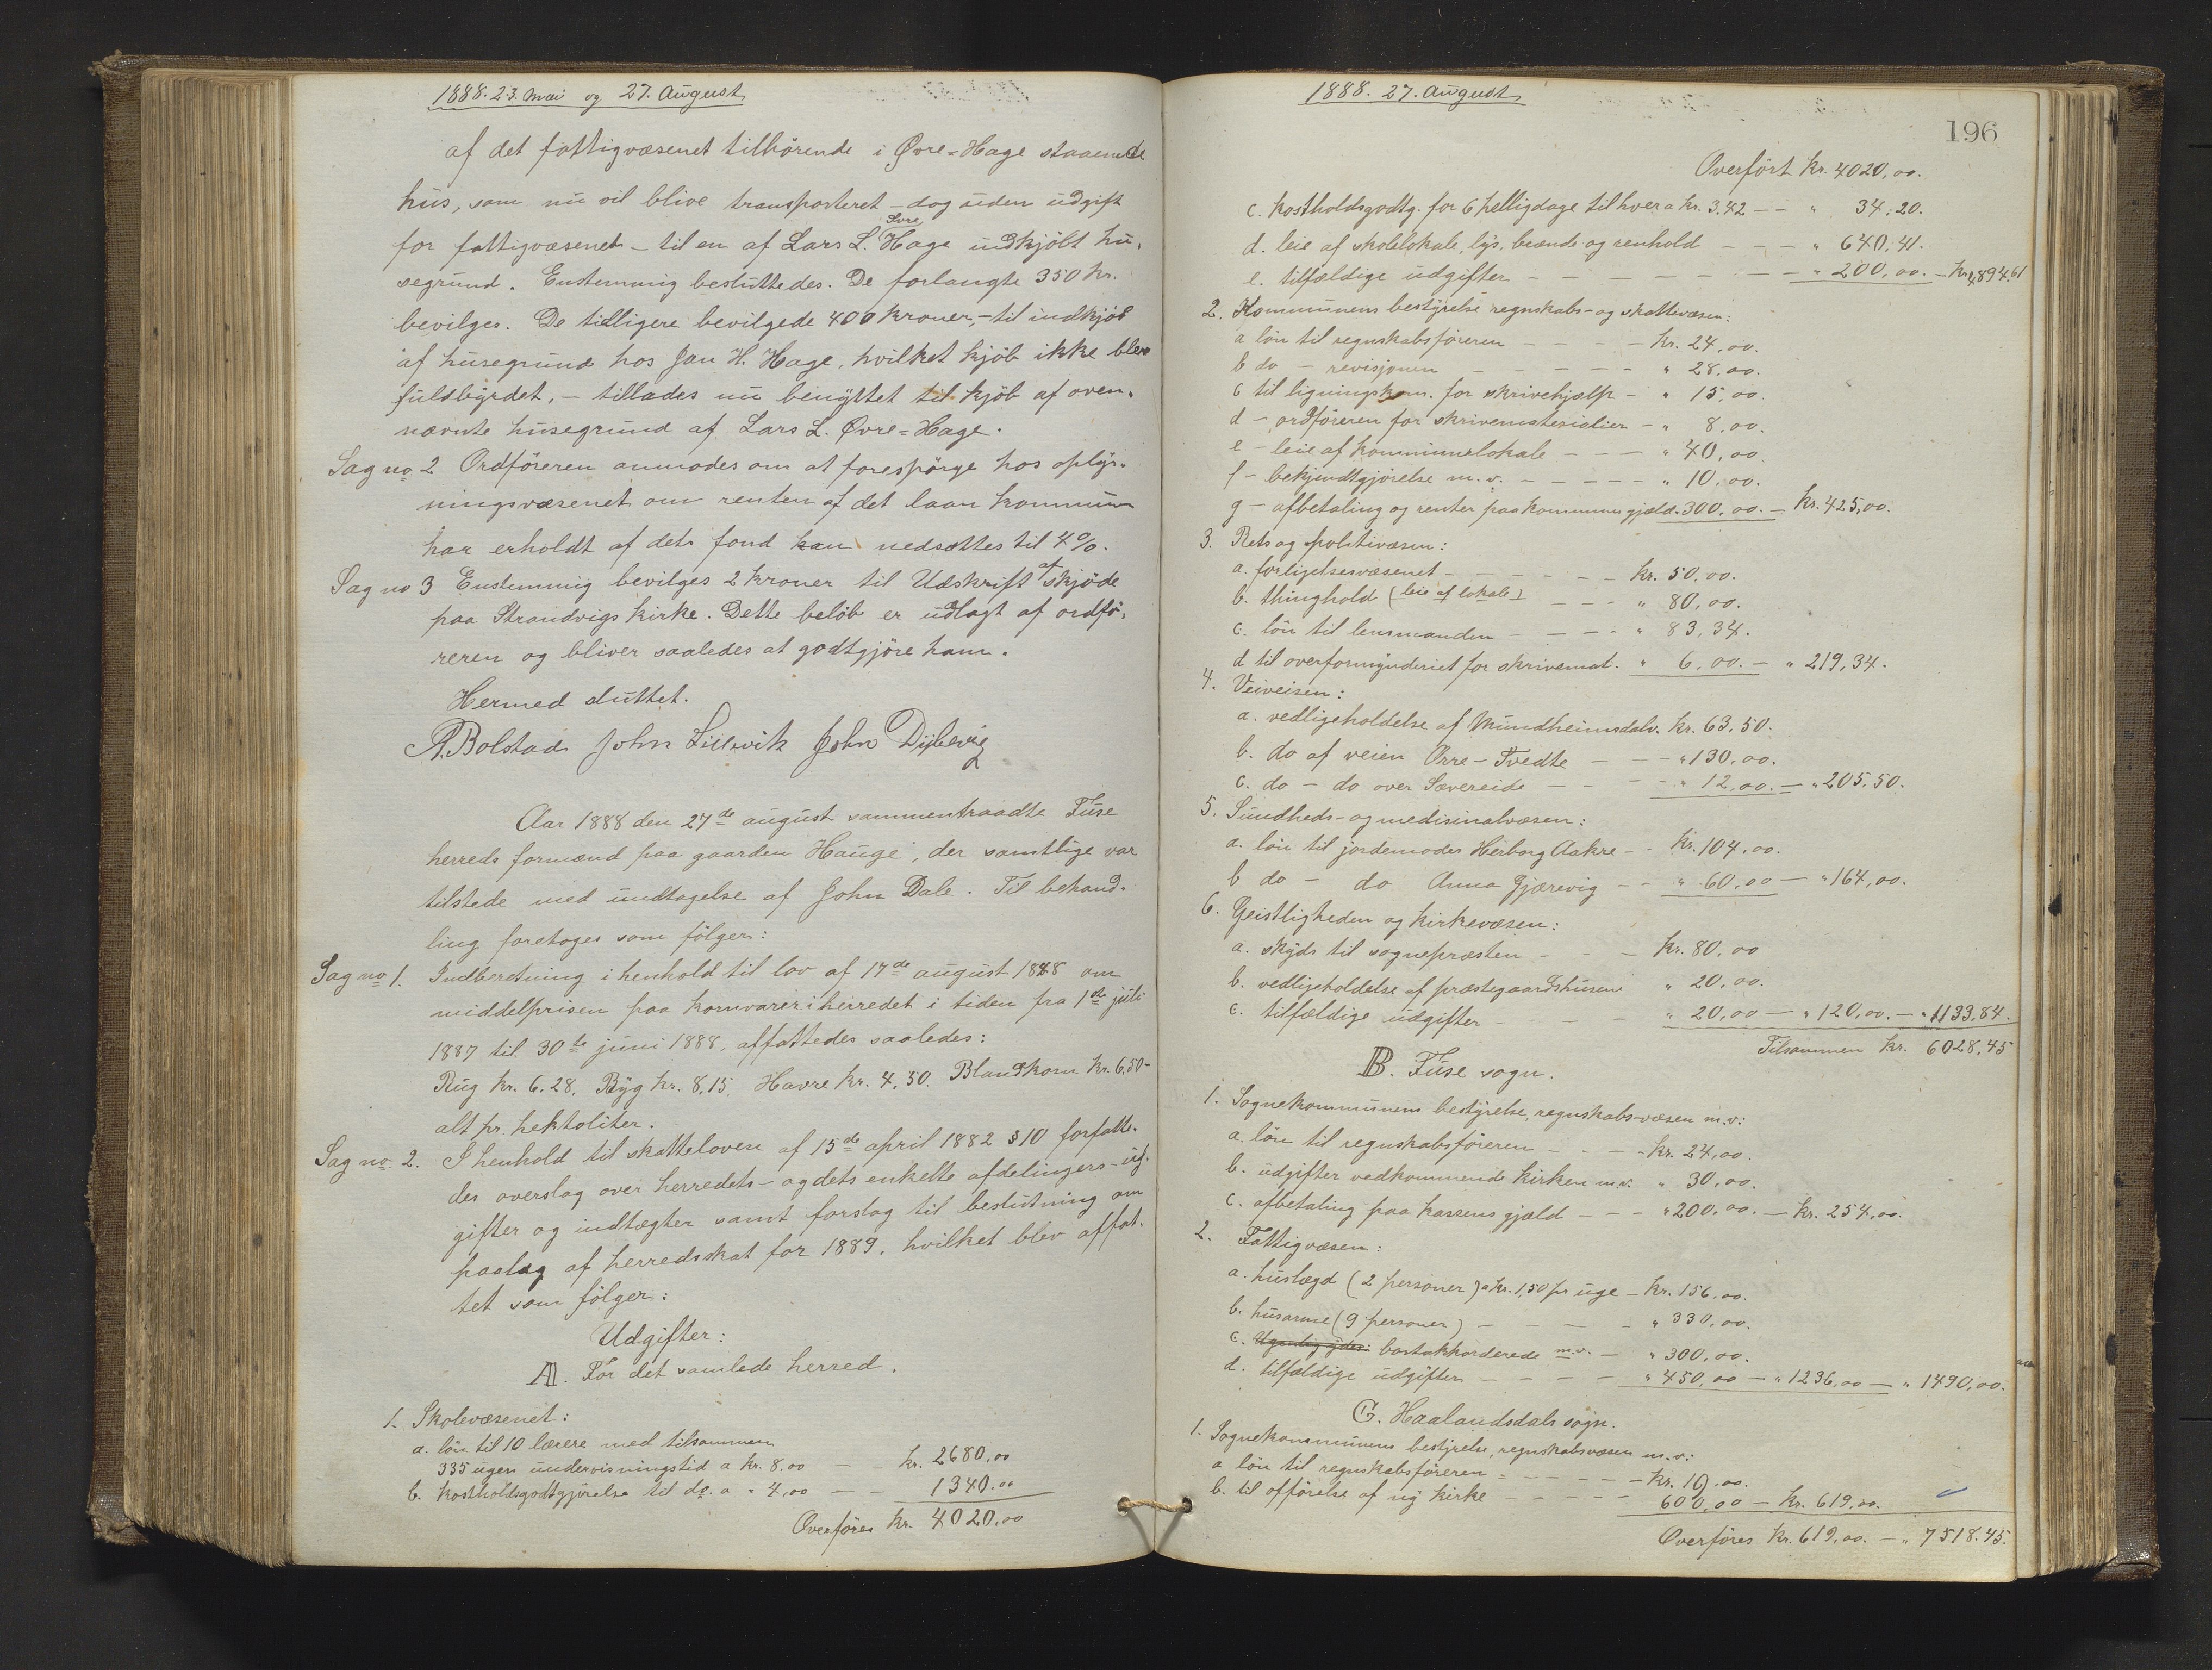 1888. 23. mai og 27. August
af det fattigvæsenet tilhörende i Øvre-Hage staaende
hus, som nu vil blive transporteret – dog uden udgift
for fattigvæsenet – til en af Lars L. Øvre Hage indkjöbt hu-
segrund. Enstemmig besluttedes. De forlangte 350 kr.
bevilges. De tidligere bevilgede 400 kroner, – til indkjöb
af husegrund hos Jan H. Hage, hvilket kjöb ikke blev
fuldbyrdet, – tillades nu benyttet til kjöb af oven-
nævnte husegrund af Lars L. Øvre-Hage.
Sag no 2 Ordföreren anmodes om at forespörge hos oplys-
ningsvæsenet om renten af det laan kommunen
har erholdt af dets fond kan nedsættes til 4%.
Sag no 3 Enstemmig bevilges 2 kroner til Udskrift af skjöde
paa Strandvigs kirke. Dette belöb er udlagt af ordfö-
reren og bliver saaledes at godtgjöre ham.
Hermed sluttet.
A. Bolstad John Lillevik John Dybevig
Aar 1888 den 27de august sammentraadte Fuse
herreds formænd paa gaarden Hauge, der samtlige var
tilstede med undtagelse af John Dale. Til behand-
ling foretoges som fölger:
Sag no 1. Indberetning i henhold til lov af 17de august 1848 om
middelprisen paa kornvarer i herredet i tiden fra 1ste juli
1887 til 30te juni 1888, affattedes saaledes:
Rug kr. 6.28. Byg kr. 8.15. Havre kr. 4.50. Blandkorn kr. 6.50 –
alt pr. hektoliter.
Sag no. 2. I henhold til skatteloven af 15de april 1882 § 10 forfatte-
des overslag over herredets – og dets enkelte afdelingers – ud-
gifter og indtægter samt forslag til beslutning om
paalæg af herredsskat for 1889, hvilket blev affat-
tet som fölger:
Udgifter:
A. For det samlede herred.
1. Skolevæsenet:
a. lön til 10 lærere med tilsammen
335 ugers undervisningstid a kr. 8.00 – – kr. 2680,00
b. kostholdsgodtgjörelse til do. a " 4,00 – – 1340.00
Overföres kr. 4020,00
1888. 27. August
196
Overfört kr. 4020,00.
c. kostholdsgodtg. for 6 helligdage til hver a kr. 3.42 – – " 34,20.
d. leie af skolelokale, lys, brænde og renhold – – – " 640,41.
e. tilfældige udgifter – – – – – – – " 200,00. – kr. 4894.61
2. Kommunens bestyrelse regnskabs- og skattevæsen:
a lön til regnskabsföreren – – – – kr. 24,00.
b do – revisjonen – – – – – " 28,00.
c til ligningskom. for skrivehjælp – " 15,00.
d – ordföreren for skrivematerialier – " 8,00.
e – leie af kommunelokale – – – " 40,00.
f – bekjendtgjörelse m.v. – – – – – " 10,00.
g – afbetaling og renter paa kommunegjæld. 300,00. – kr. 425,00.
3. Rets og politivæsen:
a. forligelsesvæsenet – – – – – – kr. 50,00.
b. thinghold (leie af lokale) – – – " 80,00.
c. lön til lensmanden – – – – " 83,34.
d til overformynderiet for skrivemat. " 6,00. – " 219,34.
4. Veiveisen:
a. vedligeholdelse af Mundheimsdalv. kr. 63.50.
b. do af veien Orre – Tvedte – – – " 130,00.
c. do – do over Sævereide – – – – " 12,00. – " 205,50.
5. Sundheds- og medisinalvæsen:
a. lön til jordemoder Herborg Aakre – – kr. 104,00.
b do – do Anna Gjærevig – – " 60,00 – " 164,00.
6. Geistligheden og kirkevæsen:
a. skyds til sognepræsten – – – kr. 80,00
b. vedligeholdelse af præstegaardshusene " 20,00.
c. tilfældige udgifter – – – – " 20,00 – " 120,00. – " 1133,84.
Tilsammen kr. 6028,45
B. Fuse sogn.
1. Sognekommunens bestyrelse, regnskabs-væsen m.v:
a. lön til regnskabsföreren – – – – kr. 24,00.
b. udgifter vedkommende kirken m.v. " 30,00.
c. afbetaling paa kassens gjæld – – – " 200,00. – kr. 254,00.
2. Fattigvæsen:
a. huslægd (2 personer) a kr. 1,50 pr uge – kr. 156,00.
b. husarme (9 personer) – – – – – " 330,00.
c. bortakkorderede m.v. – " 300,00.
d. tilfældige udgifter – – – – " 450,00 – " 1236,00 – " 1490,00.
C. Haalandsdals sogn.
1. Sognekommunens bestyrelse, regnskabsvæsen m.v.:
a lön til regnskabsföreren – – – – – – kr. 19,00.
b. til opförelse af ny kirke – – – – – 600,00 – kr. 619,00.
Overföres kr. 619,00. – " 7518.45.